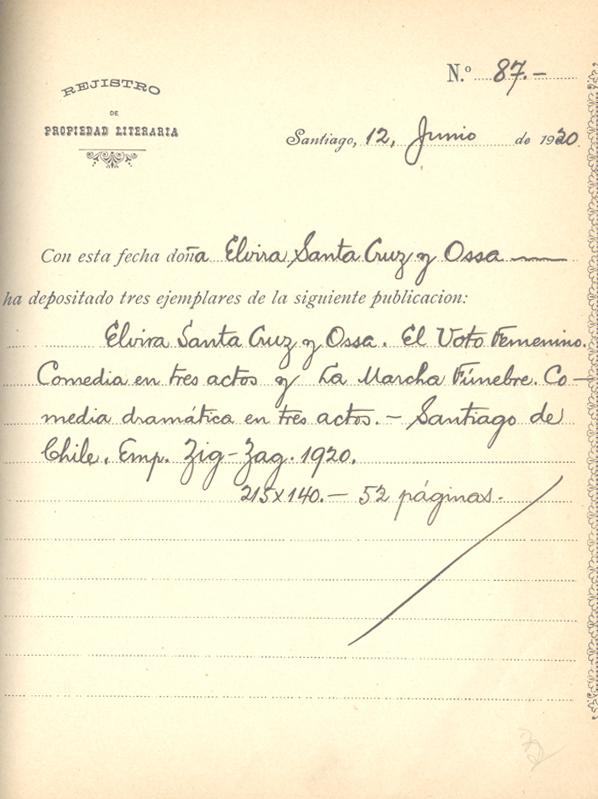 N.º 87.-
REJISTRO
DE
PROPIEDAD LITERARIA
Santiago, 12, Junio de 1920.
Con esta fecha doña Elvira Santa Cruz y Ossa —
ha depositado tres ejemplares de la siguiente publicacion:
Elvira Santa Cruz y Ossa. El Voto Femenino.
Comedia en tres actos y La Marcha Fúnebre. Co-
media dramática en tres actos.- Santiago de
Chile. Emp. Zig-Zag. 1920.
215x140.- 52 páginas.